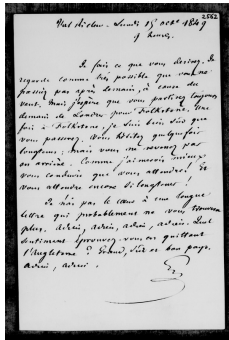 2562
Val Richer - Lundi 15 Oct 1849
9 heures.
Je fais ce que vous désirez. Je
regarde comme très possible que vous ne
passiez pas après demain, à cause du
vent. Mais j'espère que vous partirez toujours
demain de Londres pour Folkstone. Une
fois à Folkstone, je suis bien sûr que
vous passerez. Vous hésitez quelquefois
longtems ; mais vous ne revenez pas
en arrière. Comme j'aimerois mieux
vous conduire que vous attendre ! Et
vous attendre encore si longtems !
Je n'ai pas le cœur à une longue
lettre qui probablement ne vous trouvera
plus. adieu, adieu, adieu, adieu. Quel
sentiment éprouvez-vous en quittant
l'Angleterre ? Grand, sûr et bon pays.
adieu, adieu.
G.